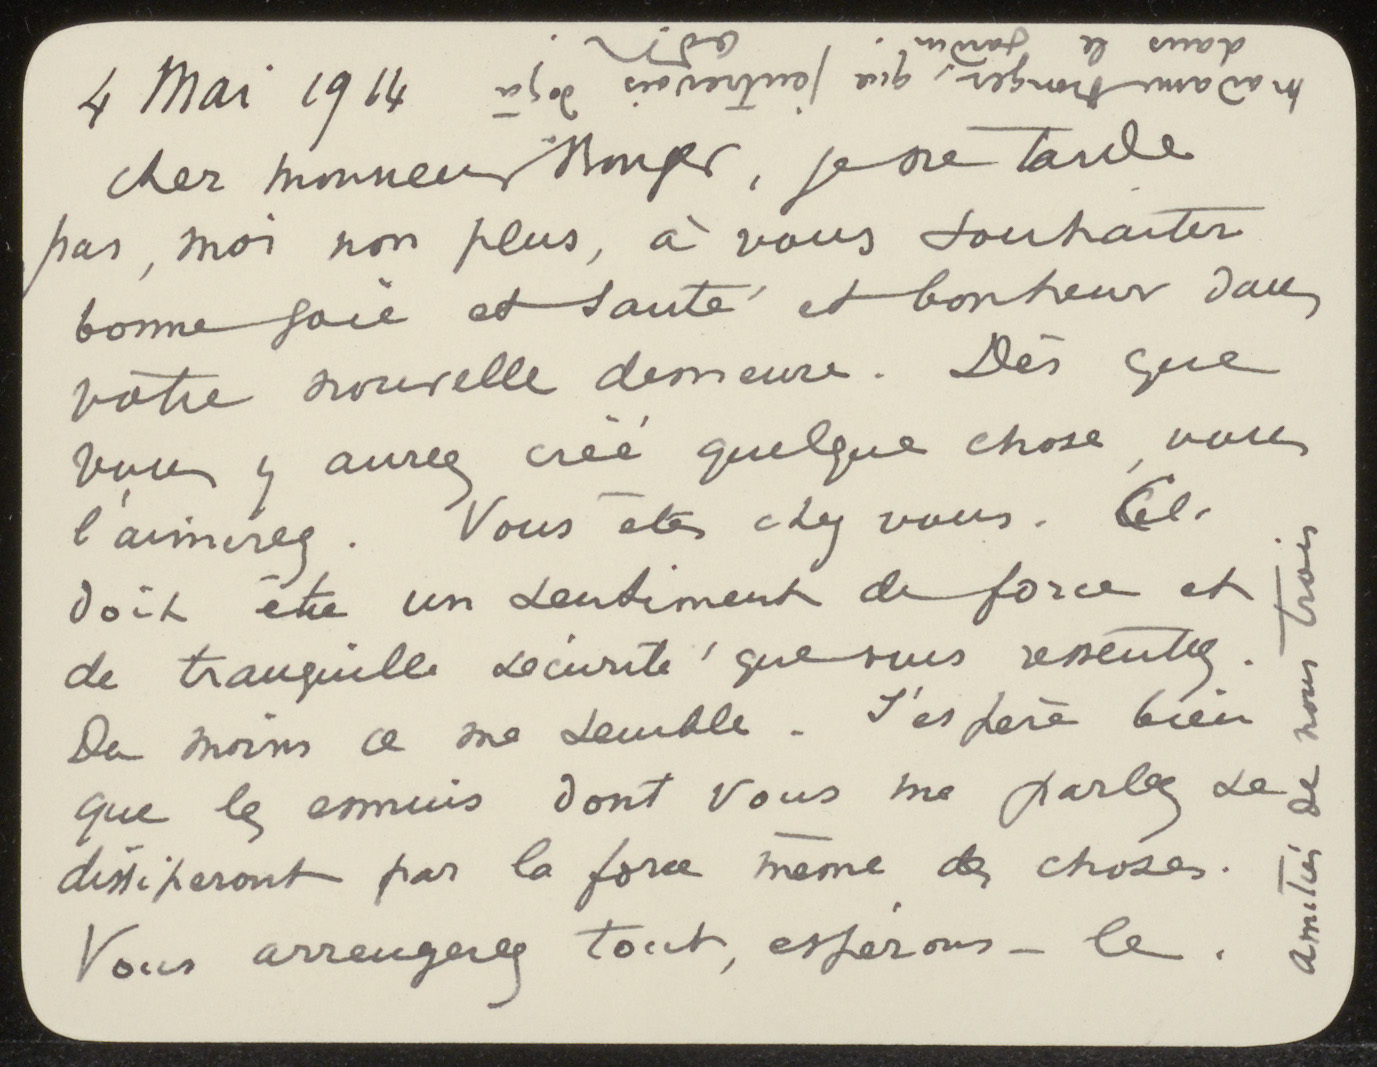 4 Mai 1914
cher monsieur Bonger, je ne tarde
pas, moi non plus, à vous souhaiter
bonne joie et santé et bonheur dans
votre nouvelle demeure. Dès que
vous y aurez créé quelque chose, vous
l'aimerez. Vous êtes chez vous. Cel.
doit être un sentiment de force et
de tranquille sécurité que vous ressentez.
Du moins ce me semble. J'espère bien
que les ennuis dont vous me parlez se
dissiperont par la force même des choses.
Vous arrangerez tout, espérons-le.
amitiés de nous trois
madame Bonger, que j'entrevois déjà
dans le jardin.